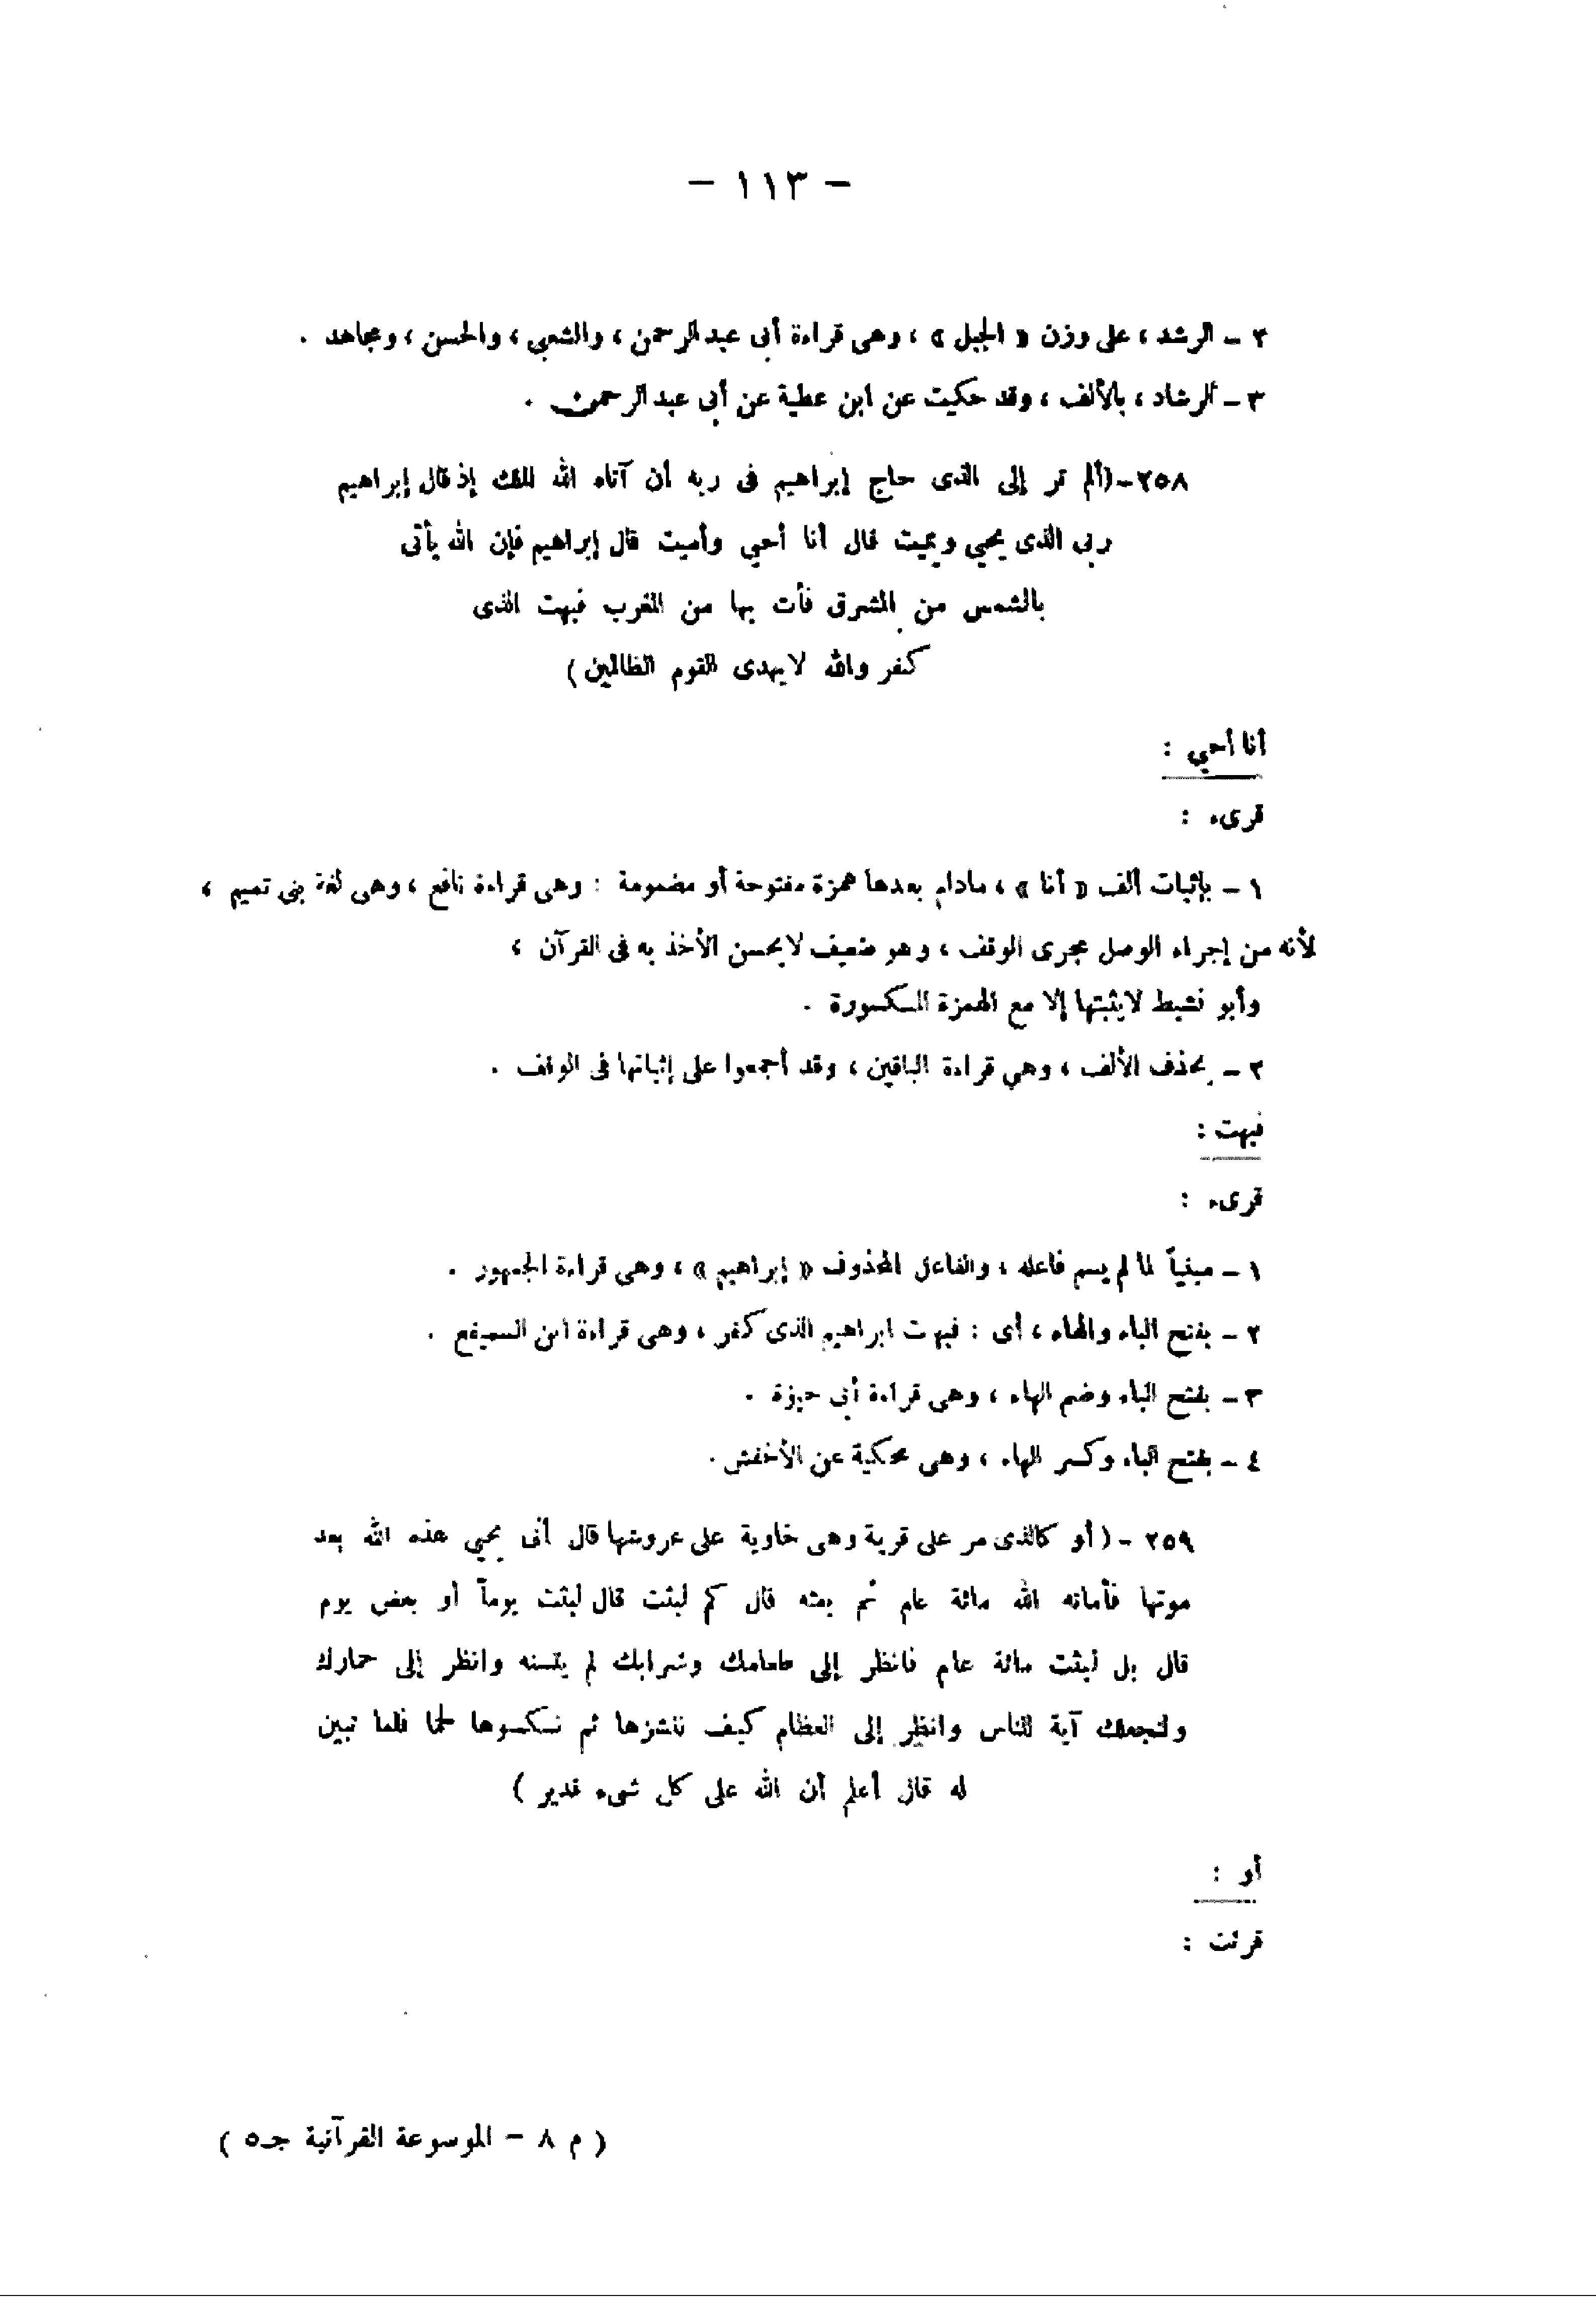 — ١١٣ —
٢ — الرشد ، على وزن « الجبل » ، وهى قراءة أبى عبد الرحمن ، والشعبي ، والحسن ، ومجاهد .
٣ — الرشاد ، بالألف ، وقد حكيت عن ابن عطية عن أبى عبد الرحمن .
٢٥٨ — (ألم تر إلى الذى حاج إبراهيم فى ربه أن آتاه الله الملك إذ قال إبراهيم
ربى الذى يحيي ويميت قال أنا أحيي وأميت قال إبراهيم فإن الله يأتى
بالشمس من المشرق فأت بها من المغرب فبهت الذى
كفر والله لا يهدى القوم الظالمين )
أنا أحيي :
قرىء :
١ — بإثبات ألف « أنا » ، مادام بعدها همزة مفتوحة أو مضمومة : وهى قراءة نافع ، وهى لغة بنى تميم ،
لأنه من إجراء الوصل مجرى الوقف ، وهو ضعيف لا يحسن الأخذ به فى القرآن ،
وأبو نشيط لا يثبتها إلا مع الهمزة المكسورة .
٢ — بحذف الألف ، وهي قراءة الباقين ، وقد أجمعوا على إثباتها فى الوقف .
فبهت :
قرىء :
١ — مبنياً لما لم يسم فاعله ، والفاعل المحذوف « إبراهيم » ، وهى قراءة الجمهور .
٢ — بفتح الباء والهاء ، أى : فبهت ابراهيم الذى كفر ، وهى قراءة ابن السميفع .
٣ — بفتح الباء وضم الهاء ، وهى قراءة أبى حيوة .
٤ — بفتح الباء وكسر الهاء ، وهى محكية عن الأخفش .
٢٥٩ — ( أو كالذى مر على قرية وهى خاوية على عروشها قال أنى يحيي هذه الله بعد
موتها فأماته الله مائة عام ثم بعثه قال كم لبثت قال لبثت يوماً أو بعض يوم
قال بل لبثت مائة عام فانظر إلى طعامك وشرابك لم يتسنه وانظر إلى حمارك
ولنجعلك آية للناس وانظر إلى العظام كيف ننشزها ثم نكسوها لحما فلما تبين
له قال أعلم أن الله على كل شىء قدير )
أو :
قرئت :
( م ٨ — الموسوعة القرآنية جـ ٥ )